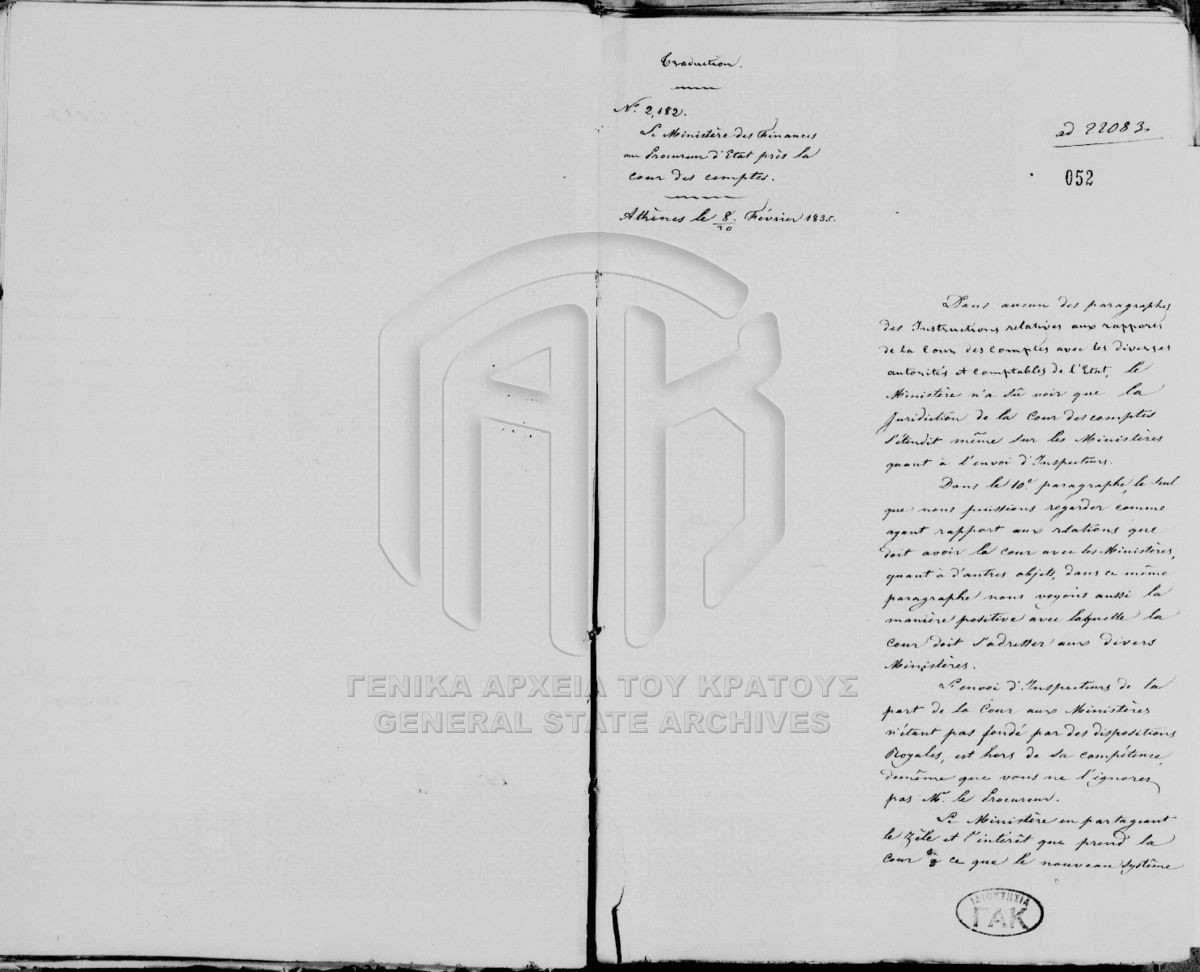 Traduction.
Nº 2,182.
Le Ministère des Finances
au Procureur d'Etat près la
cour des comptes.
Athènes le 8/20 Février 1835.
ad 22083.
052
Dans aucun des paragraphes
des Instructions relatives aux rapports
de la Cour des Comptes avec les diverses
autorités et comptables de l'Etat, le
Ministère n'a sû voir que la
Juridiction de la Cour des comptes
s'étendit même sur les Ministères
quant à l'envoi d'Inspecteurs.
Dans le 10e paragraphe, le seul
que nous puissions regarder comme
ayant rapport aux relations que
doit avoir la cour avec les Ministères,
quant à d'autres objets, dans ce même
paragraphe nous voyons aussi la
manière positive avec laquelle la
Cour doit s'adresser aux divers
Ministères.
L'envoi d'Inspecteurs de la
part de la Cour aux Ministères
n'étant pas fondé par des dispositions
Royales, est hors de sa compétence,
demême que vous ne l'ignorez
pas Mr. le Procureur.
Le Ministère en partageant
le zèle et l'intérêt que prend la
Cour à ce que le nouveau système
ΓΕΝΙΚΑ ΑΡΧΕΙΑ ΤΟΥ ΚΡΑΤΟΥΣ
GENERAL STATE ARCHIVES
ΙΔΙΟΚΤΗΣΙΑ
ΓΑΚ